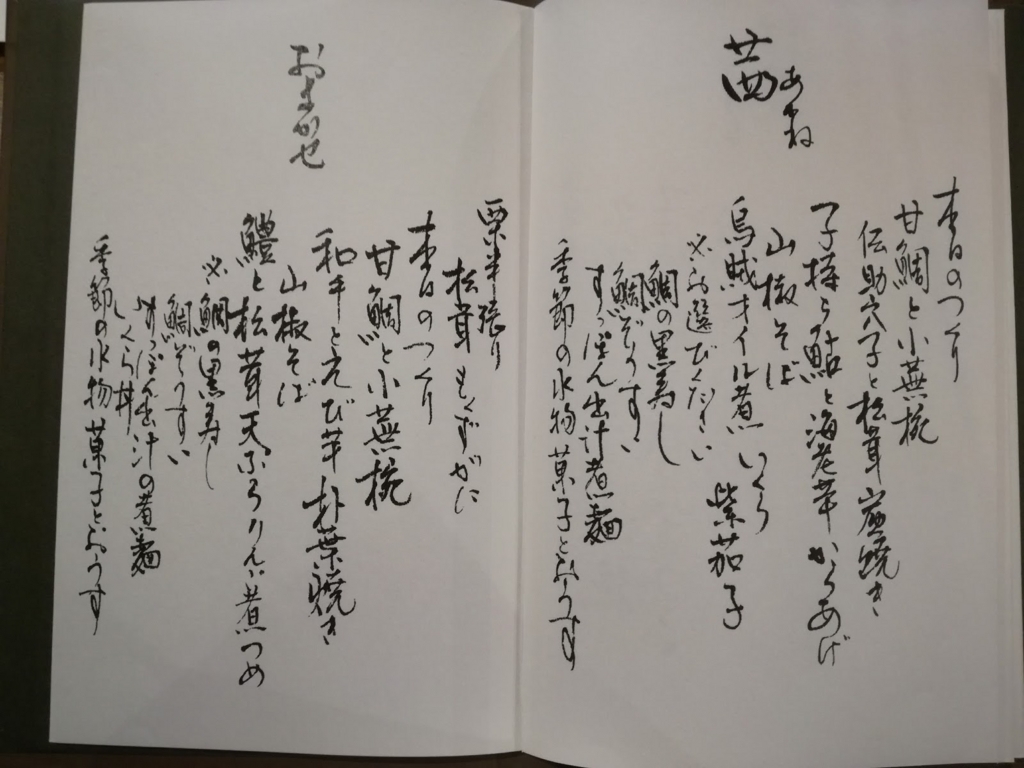 茜
あかね
本日のつくり
甘鯛と小蕪椀
伝助穴子と松茸 焼き
子持ち鮎と海老芋 からあげ
山椒そば
烏賊オイル煮 いくら 紫茄子
※お選びください
鯛の黒寿し
鯛ぞうすい
すっぽん出汁煮麺
季節の水物 菓子とおうす
おまかせ
栗 り
松茸 もくずがに
本日のつくり
甘鯛と小蕪椀
和牛とえび芋 朴葉焼き
山椒そば
鱧と松茸天ぷら りんご煮つめ
※鯛の黒寿し
鯛ぞうすい
すっぽん出汁の煮麺
いくら丼
季節の水物 菓子とおうす